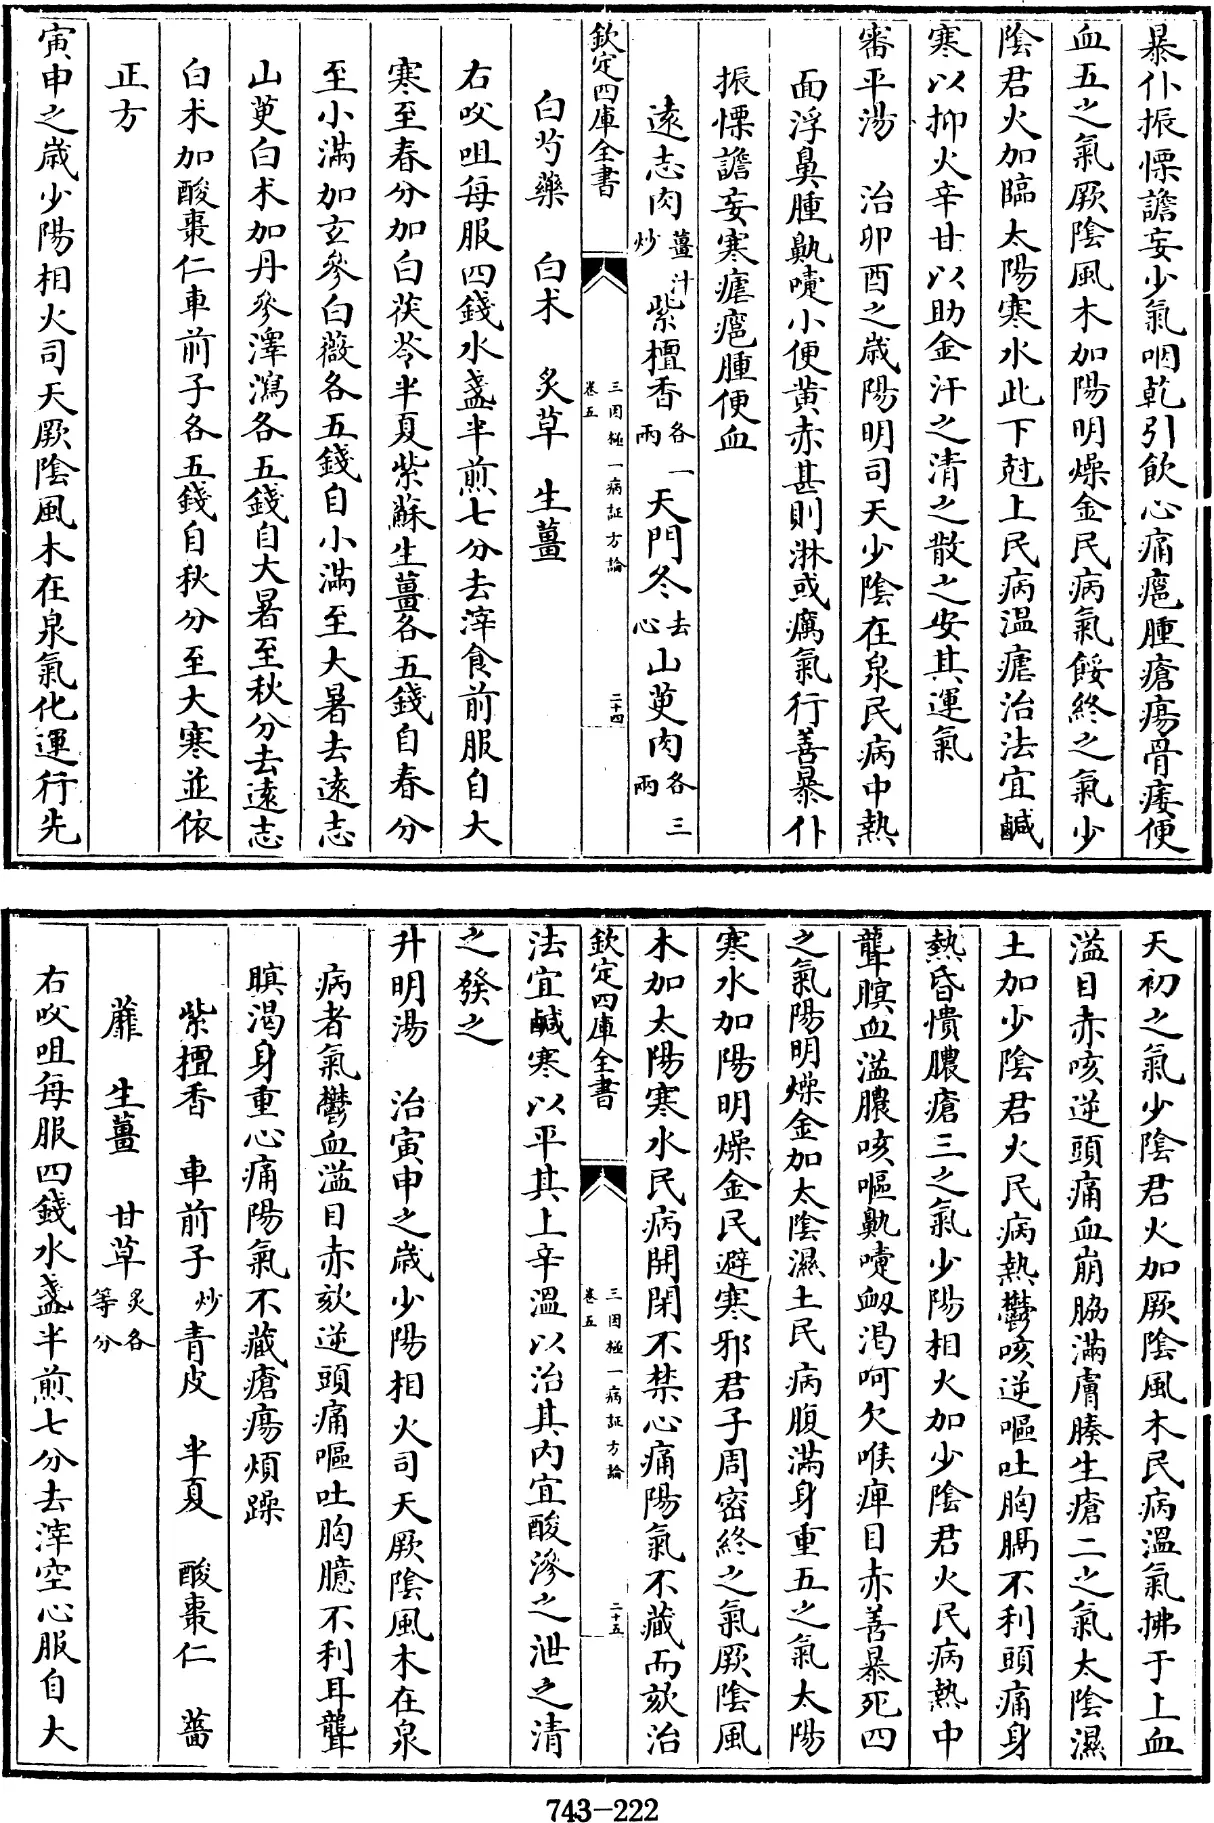 暴仆振慄譫妄少氣咽乾引飲心痛瘡腫瘡瘍骨痿便
血五之氣厥陰風木加陽明燥金民病氣餒終之氣少
陰君火加臨太陽寒水此下尅上民病溫瘧治法宜鹹
寒以抑火辛甘以助金汗之清之散之安其運氣
審平湯　治卯酉之歲陽明司天少陰在泉民病中熱
面浮鼻腫鼽嚏小便黄赤甚則淋或癘氣行善暴仆
振慄譫妄寒瘧瘡腫便血
遠志肉薑汁炒　紫檀香各一兩　天門冬去心　山茰肉各三兩
欽定四庫全書　三因極一病証方論　卷五　二十四
白芍藥　白朮　炙草　生薑
右㕮咀每服四錢水盞半煎七分去滓食前服自大
寒至春分加白茯苓半夏紫蘇生薑各五錢自春分
至小滿加玄參白薇各五錢自小滿至大暑去遠志
山茰白朮加丹參澤瀉各五錢自大暑至秋分去遠志
白朮加酸棗仁車前子各五錢自秋分至大寒並依
正方
寅申之歲少陽相火司天厥陰風木在泉氣化運行先
天初之氣少陰君火加厥陰風木民病溫氣拂于上血
溢目赤咳逆頭痛血崩脇滿膚腠生瘡二之氣太陰濕
土加少陰君火民病熱鬱咳逆嘔吐胸膈不利頭痛身
熱昏憒膿瘡三之氣少陽相火加少陰君火民病熱中
聾瞑血溢膿咳嘔鼽嚏衂渴呵欠喉痺目赤善暴死四
之氣陽明燥金加太陰濕土民病腹滿身重五之氣太陽
寒水加陽明燥金民避寒邪君子周密終之氣厥陰風
木加太陽寒水民病開閉不禁心痛陽氣不藏而欬治
欽定四庫全書　三因極一病証方論　卷五　二十五
法宜鹹寒以平其上辛溫以治其內宜酸滲之泄之清
之發之
升明湯　治寅申之歲少陽相火司天厥陰風木在泉
病者氣鬱血溢目赤欬逆頭痛嘔吐胸臆不利耳聾
瞑渴身重心痛陽氣不藏瘡瘍煩躁
紫檀香　車前子炒　青皮　半夏　酸棗仁　薔
蘼　生薑　甘草炙各等分
右㕮咀每服四錢水盞半煎七分去滓空心服自大
743-222